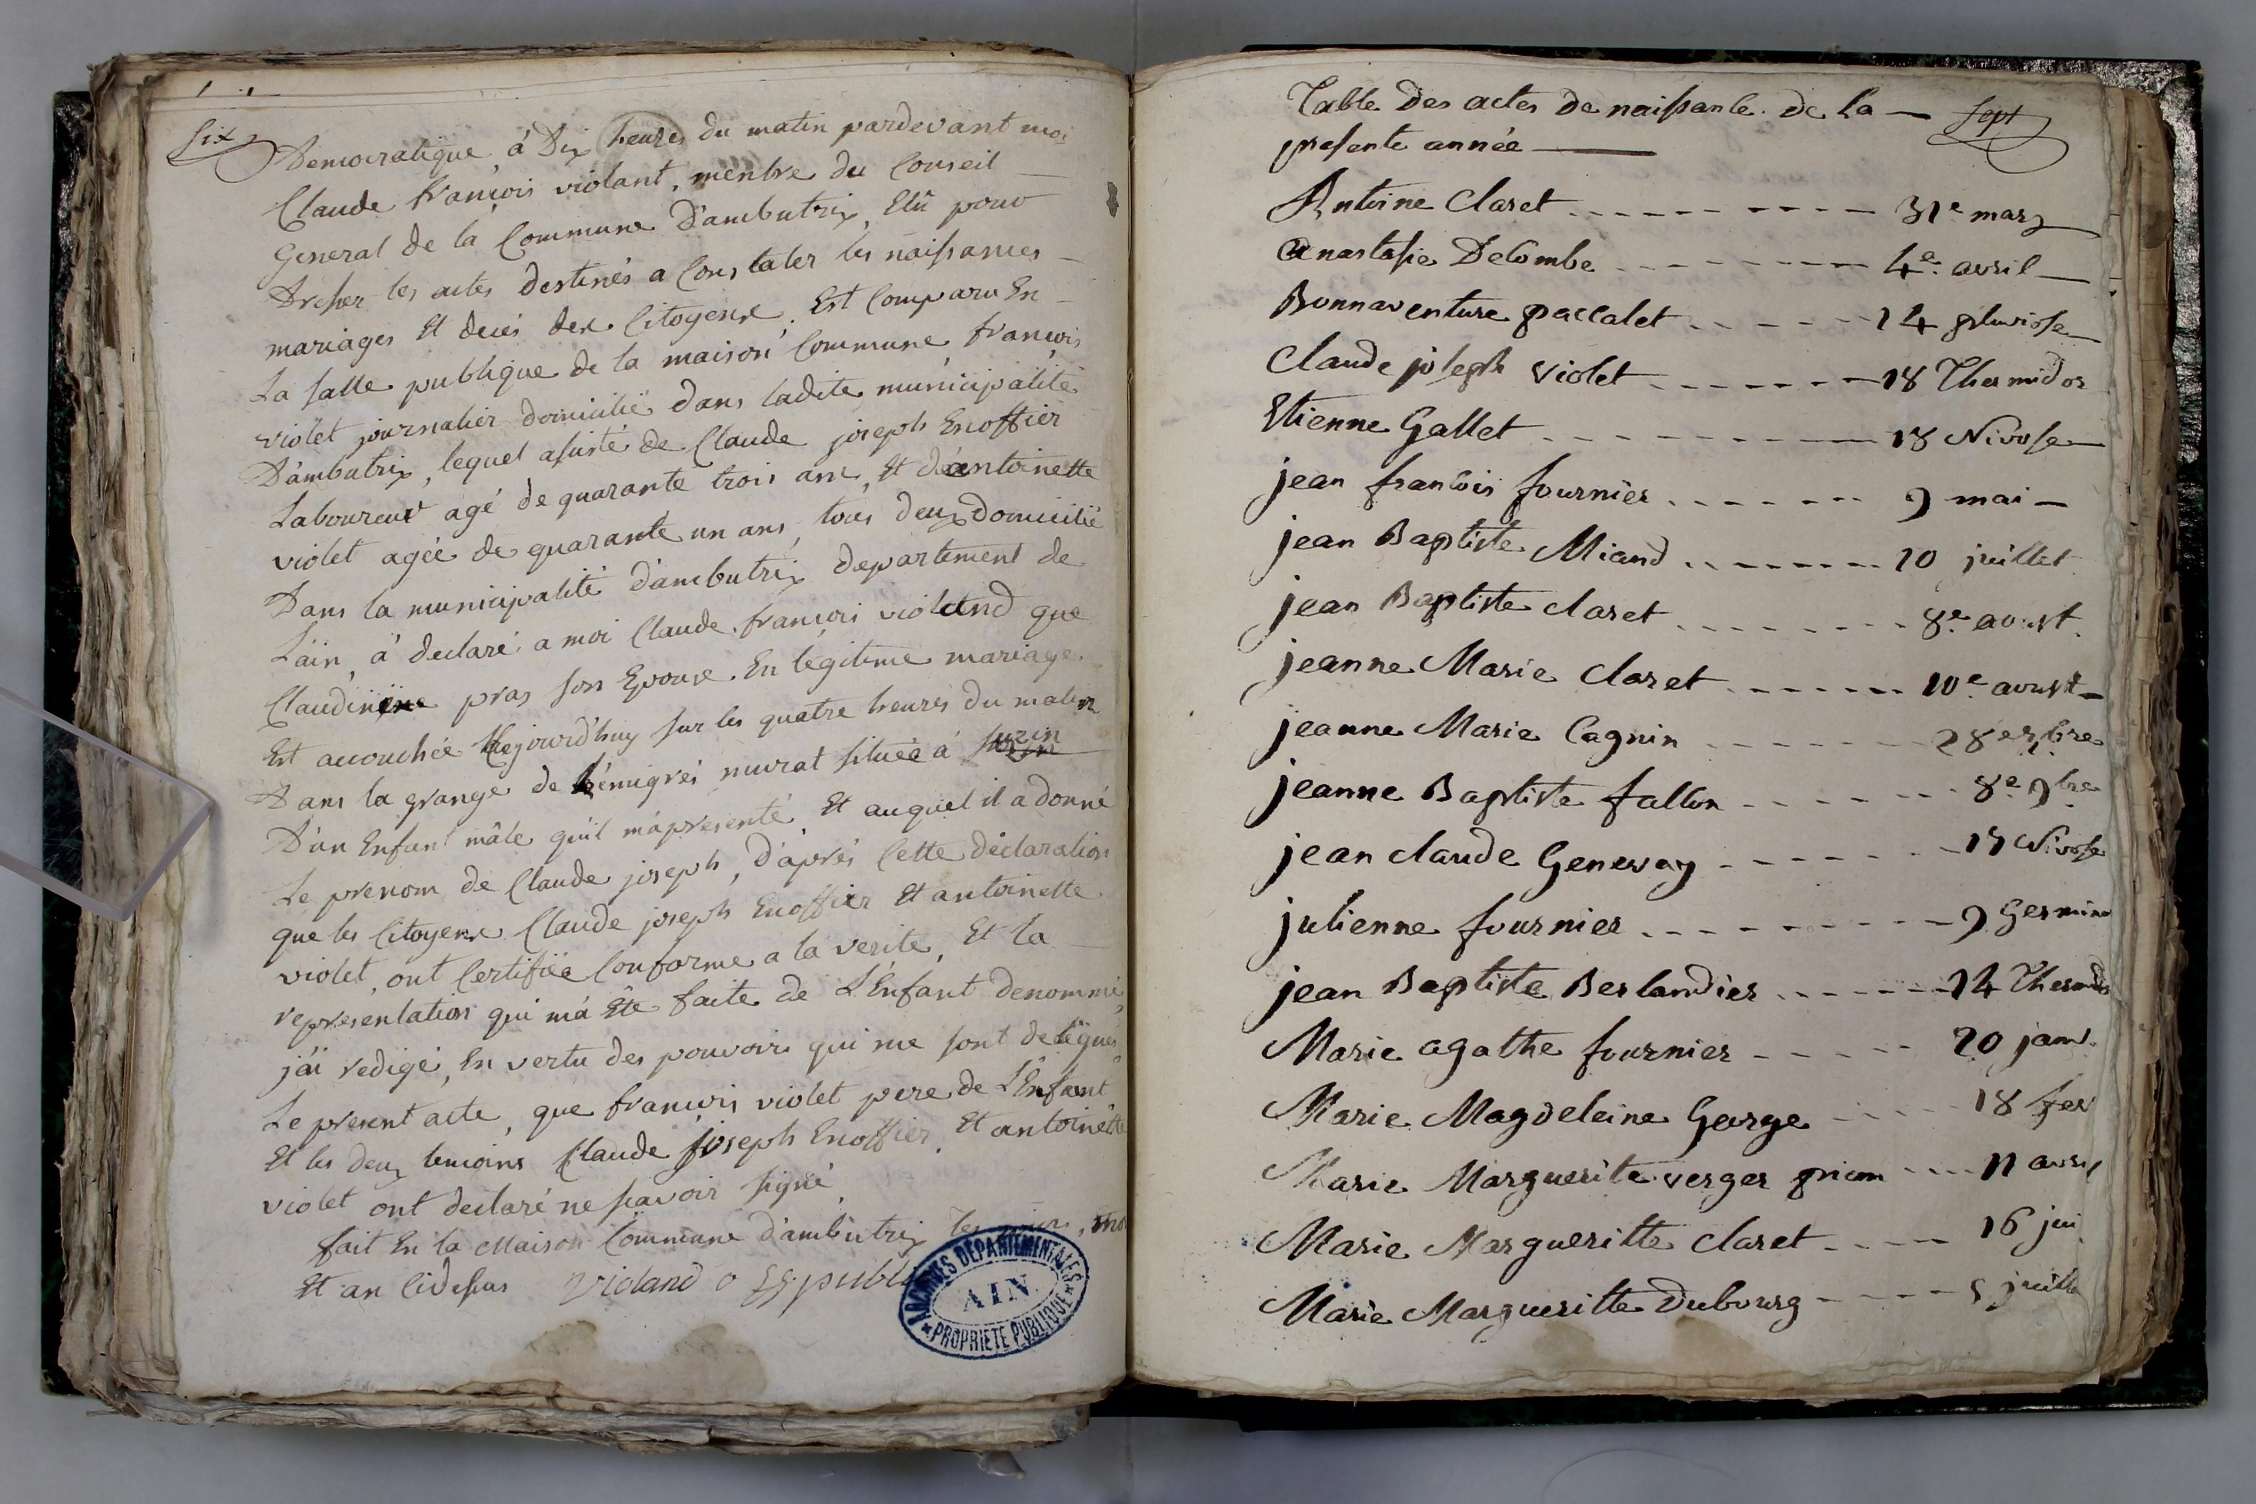 six
Democratique, á Dix heures du matin pardevant moi
Claude françois violant, menbre du Conseil
General de la Commune D'ambutrix, Elû pour
Dresser les actes destinés a Constater les naissances
mariages Et decés des Citoyens. Est Comparu En
La salle publique de la maison Commune françois
violet journalier domicilié dans ladite municipalité
D'ambutrix, lequel assisté de Claude joseph Enoffier
Laboureur agé de quarante trois ans, Et d'antoinette
violet agée de quarante un ans, tous deux domicilié
Dans la municipalité d'ambutrix departement de
L'ain, á declaré a moi Claude françois violand que
Claudinine pras son Epouse En légitime mariage
Est accouchée Hejourd'huy sur les quatre heures du matin
Dans la grange de L'émigrés murat située á
D'un Enfant mâle qu'il m'apresenté Et auquel il a donné
Le prenom de Claude joseph, d'aprés Cette déclaration
que les Citoyens Claude joseph Enoffier Et antoinette
violet, ont Certifiée Conforme a la verité, Et la
representation qui má Ete faite de L'Enfant denommé
j'ai redigé, En vertu des pouvoirs qui me sont delegués
Le present acte, que françois violet pere de L'Enfant
Et les deux temoins Claude joseph Enoffier, Et antoinette
violet ont declaré ne savoir signé
fait En la Maison Commune d'ambutrix les jour, mo
Et an Cidessus violand o publi
ARCHIVES DÉPARTEMENTALES
AIN
PROPRIETE PUBLIQUE
Table Des actes De naissance De La
sept
presente année
Antoine Claret 31e mars
anastasie Decombe 4e avril
Bonnaventure paccalet 14 pluviose
Claude joseph violet 18 Thermidor
Etienne Gallet 18 Nivose
jean francois fournier 9 mai
jean Baptiste Miand 10 juillet
jean Baptiste claret 8e aoust
jeanne Marie Claret 10e aoust
jeanne Marie Cagnin 28e bre
jeanne Baptiste fallon 8e 9bre
jean claude Genevay Nivose
julienne fournier 9 Germin
jean Baptiste Berlandier 14 Thermidor
Marie agathe fournier 20 janv.
Marie Magdeleine George 18 fev
Marie Marguerite verger 11 avril
Marie Margueritte claret 16 jui
Marie Margueritte Dubourg 5 juille